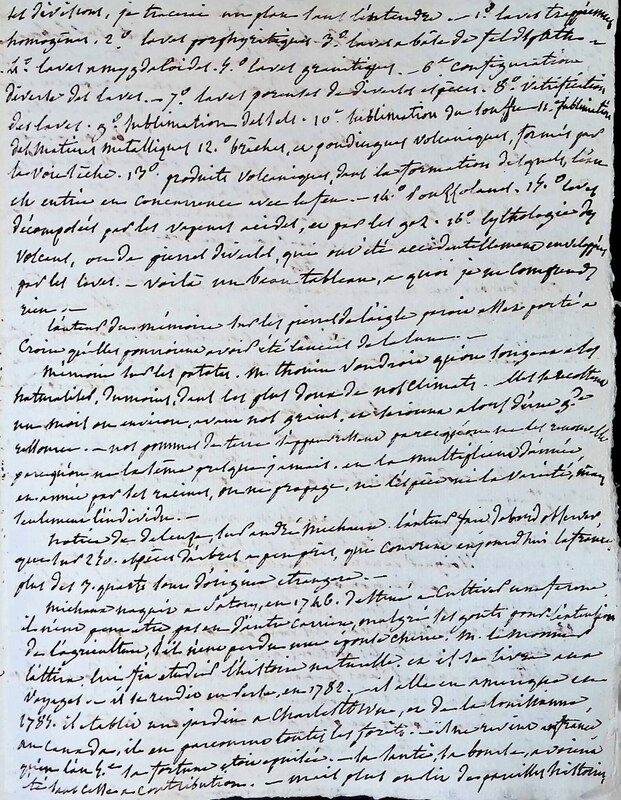 ses divisions, je tracerai un plan sans l'étendre. — 1.° laves trappéennes
homogènes. 2.° laves porphyritiques. 3.° laves a base de feldspath —
4.° laves amygdaloïdes. 5.° laves granitiques. — 6.° Configuration
diverse des laves. — 7.° laves poreuses de diverses espèces. 8.° Vitrification
des laves. 9.° Sublimation des sels. 10.° sublimation du souffre 11.° sublimation
des matières métalliques 12.° brèches, et poudingues volcaniques, formés par
la voie sèche. 13.° produits volcaniques, dans la formation desquels, l'eau
est entrée en concurrence avec le feu. — 14.° Pouzzolane. 15.° laves
décomposées par les vapeurs acides, et par les gaz. 16.° lythologie des
Volcans, ou des pierres diverses, qui ont été accidentellement enveloppées
par les laves. — voilà un beau tableau, a quoi je ne comprends
rien. —
l'auteur du mémoire sur les pierres de l'aigle paroit assez porté a
Croire qu'elles pourroient avoir été lancées de la lune. —
Mémoire sur les patates. M. thouin voudroit qu'on songeat a les
naturaliser, du moins, dans les plus doux de nos climats. elles se récoltent
un mois ou environ, avant nos grains, et seroient alors d'une g.de
ressource. — nos pommes de terre s'appauvrissent parcequ'on ne les renouvelle
parcequ'on ne la sème presque jamais. en la multipliant d'année
en année par ses racines, on ne propage, ni l'espèce ni la variété, mais
seulement l'individu. —
notice de deleuze, sur andré Michaux. l'auteur fait d'abord observer,
que sur 250. espèces d'arbres a peu près, que conserve aujourd'hui la france
plus des 3. quarts sont d'origine etrangère —
Michaux naquit a Satory, en 1746. destiné a cultiver une ferme
il n'eut peut etre pas quitté cette carrière, malgré ses gouts pour l'extension
de l'agriculture, s'il n'eut perdu une épouse chérie. M. le monnier
l'attira, lui fit etudier l'histoire naturelle, et il se livra aux
Voyages — il se rendit en perse, en 1782. — il alla en amerique en
1785. il établit un jardin a CharlesTown, et de la louisianne,
au Canada, il en parcourut toutes les forêts. — il ne revint en france
qu'en l'an 5.e sa fortune etoit epuisée. — la santé, la bourse, avoient
été sans cesse a contribution. — mais plus on lit de pareilles histoires